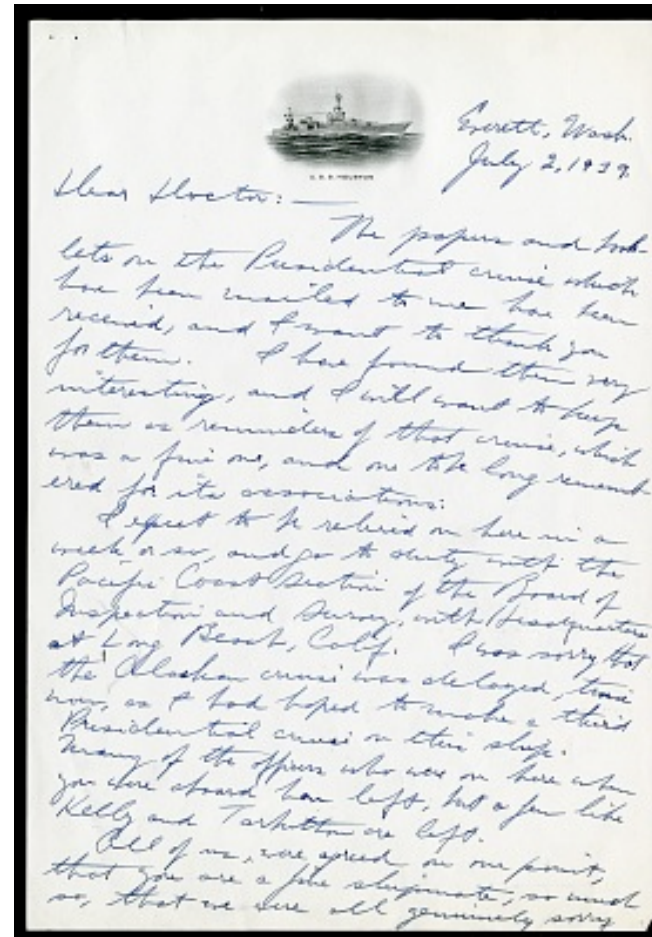 U.S.S. HOUSTON
Everett, Wash.
July 2, 1939.
Dear Doctor: —
The papers and book-
lets on the Presidential cruise which
have been mailed to me have been
received, and I want to thank you
for them. I have found them very
interesting, and I will want to keep
them as reminders of that cruise, which
was a fine one, and one to be long remem-
ered for its associations.
I expect to be relieved on here in a
week or so, and go to duty with the
Pacific Coast Section of the Board of
Inspection and Survey, with headquarters
at Long Beach, Calif. I was sorry that
the Alaskan cruise was delayed,
now, as I had hoped to make a third
Presidential cruise on this ship.
Many of the officers who were on here when
you were aboard have left, but a few like
Kelly and are left.
All of us were agreed on one point,
that you are a fine shipmate, so much
so, that we were all genuinely sorry